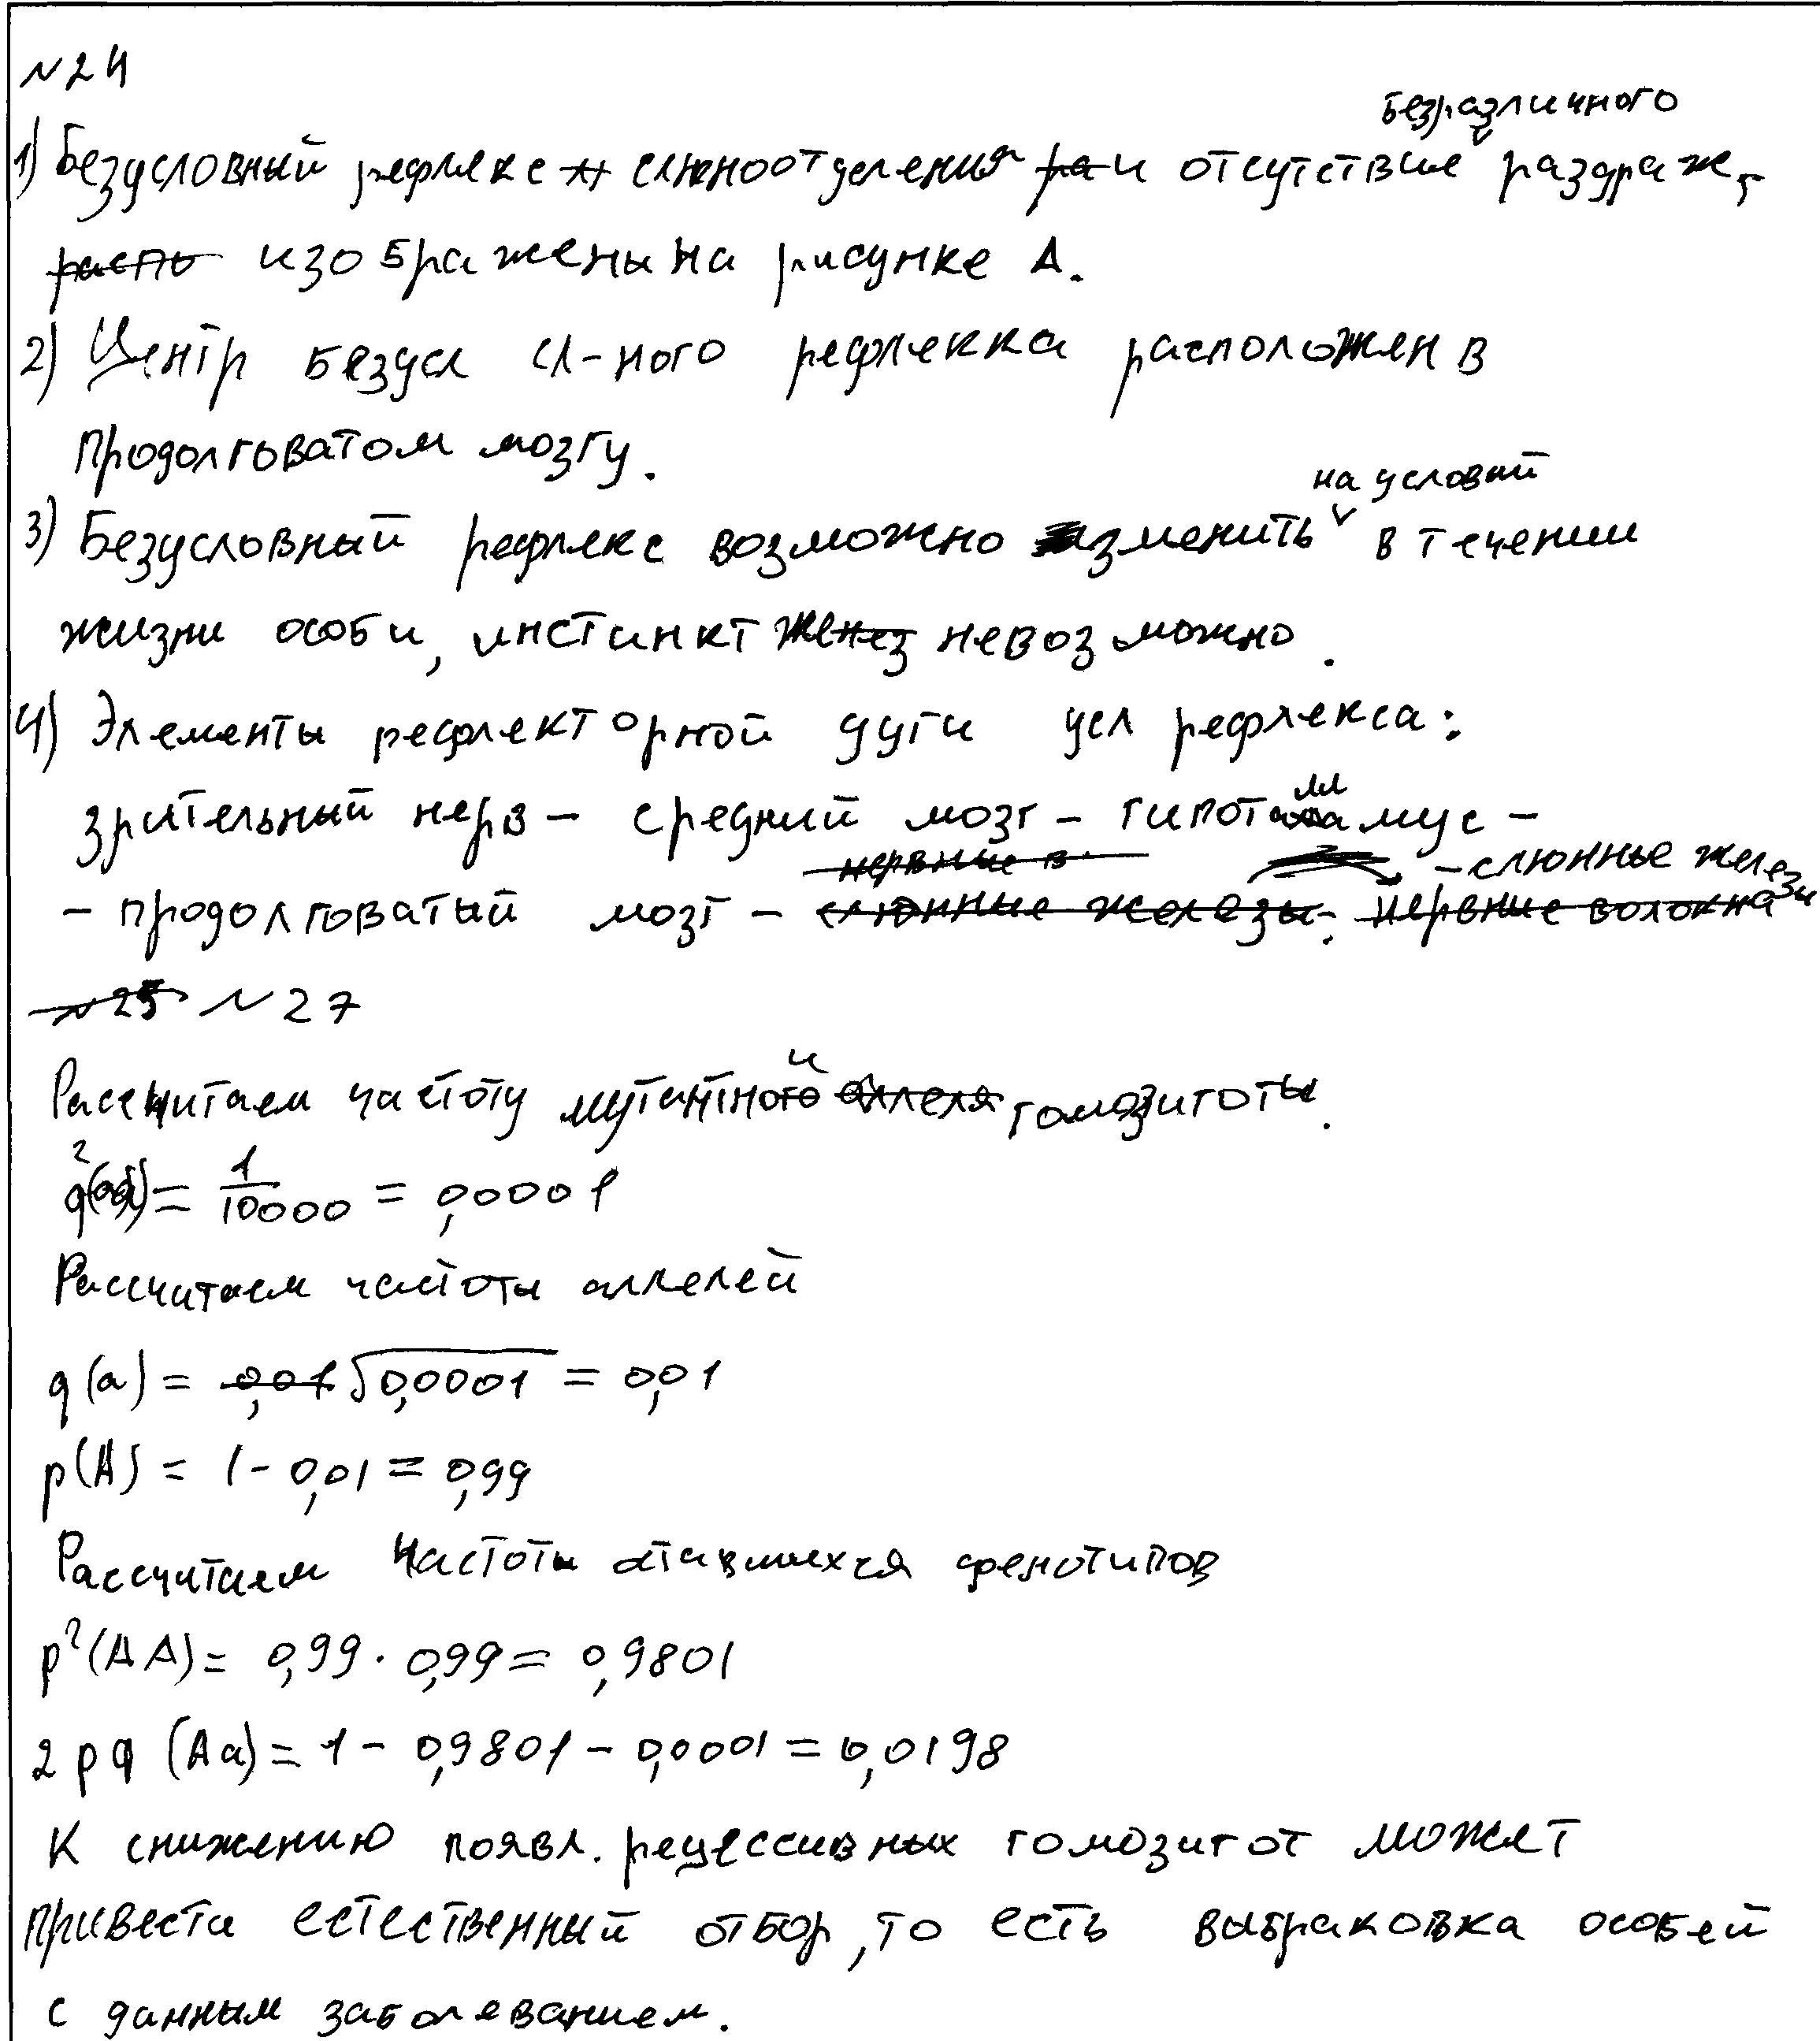 №24
безразличного
1) Безусловный рефлекс слюноотделения и отсутствие раздраж.,
изображены на рисунке А.
2) Центр безусл сл-ного рефлекка расположен в
продолговатом мозгу.
на условный
3) Безусловный рефлекс возможно изменить в течении
жизни особи, инстинкт же невозможно.
4) Элементы рефлекторной дуги усл рефлекса:
зрительный нерв – средний мозг – гипоталамус –
– слюнные железы
– продолговатый мозг – слюнные железы. нервные волокна
№25 №27
Рассчитаем частоту мутантной гомозиготы.
q²(aa) = 1/10000 = 0,0001
Рассчитаем частоты аллелей
q(a) = 0,01 √0,0001 = 0,01
p(A) = 1 - 0,01 = 0,99
Рассчитаем частоты оставшихся фенотипов
p²(AA) = 0,99 · 0,99 = 0,9801
2pq (Aa) = 1 - 0,9801 - 0,0001 = 0,0198
К снижению появл. рецессивных гомозигот может
привести естественный отбор, то есть выбраковка особей
с данным заболеванием.